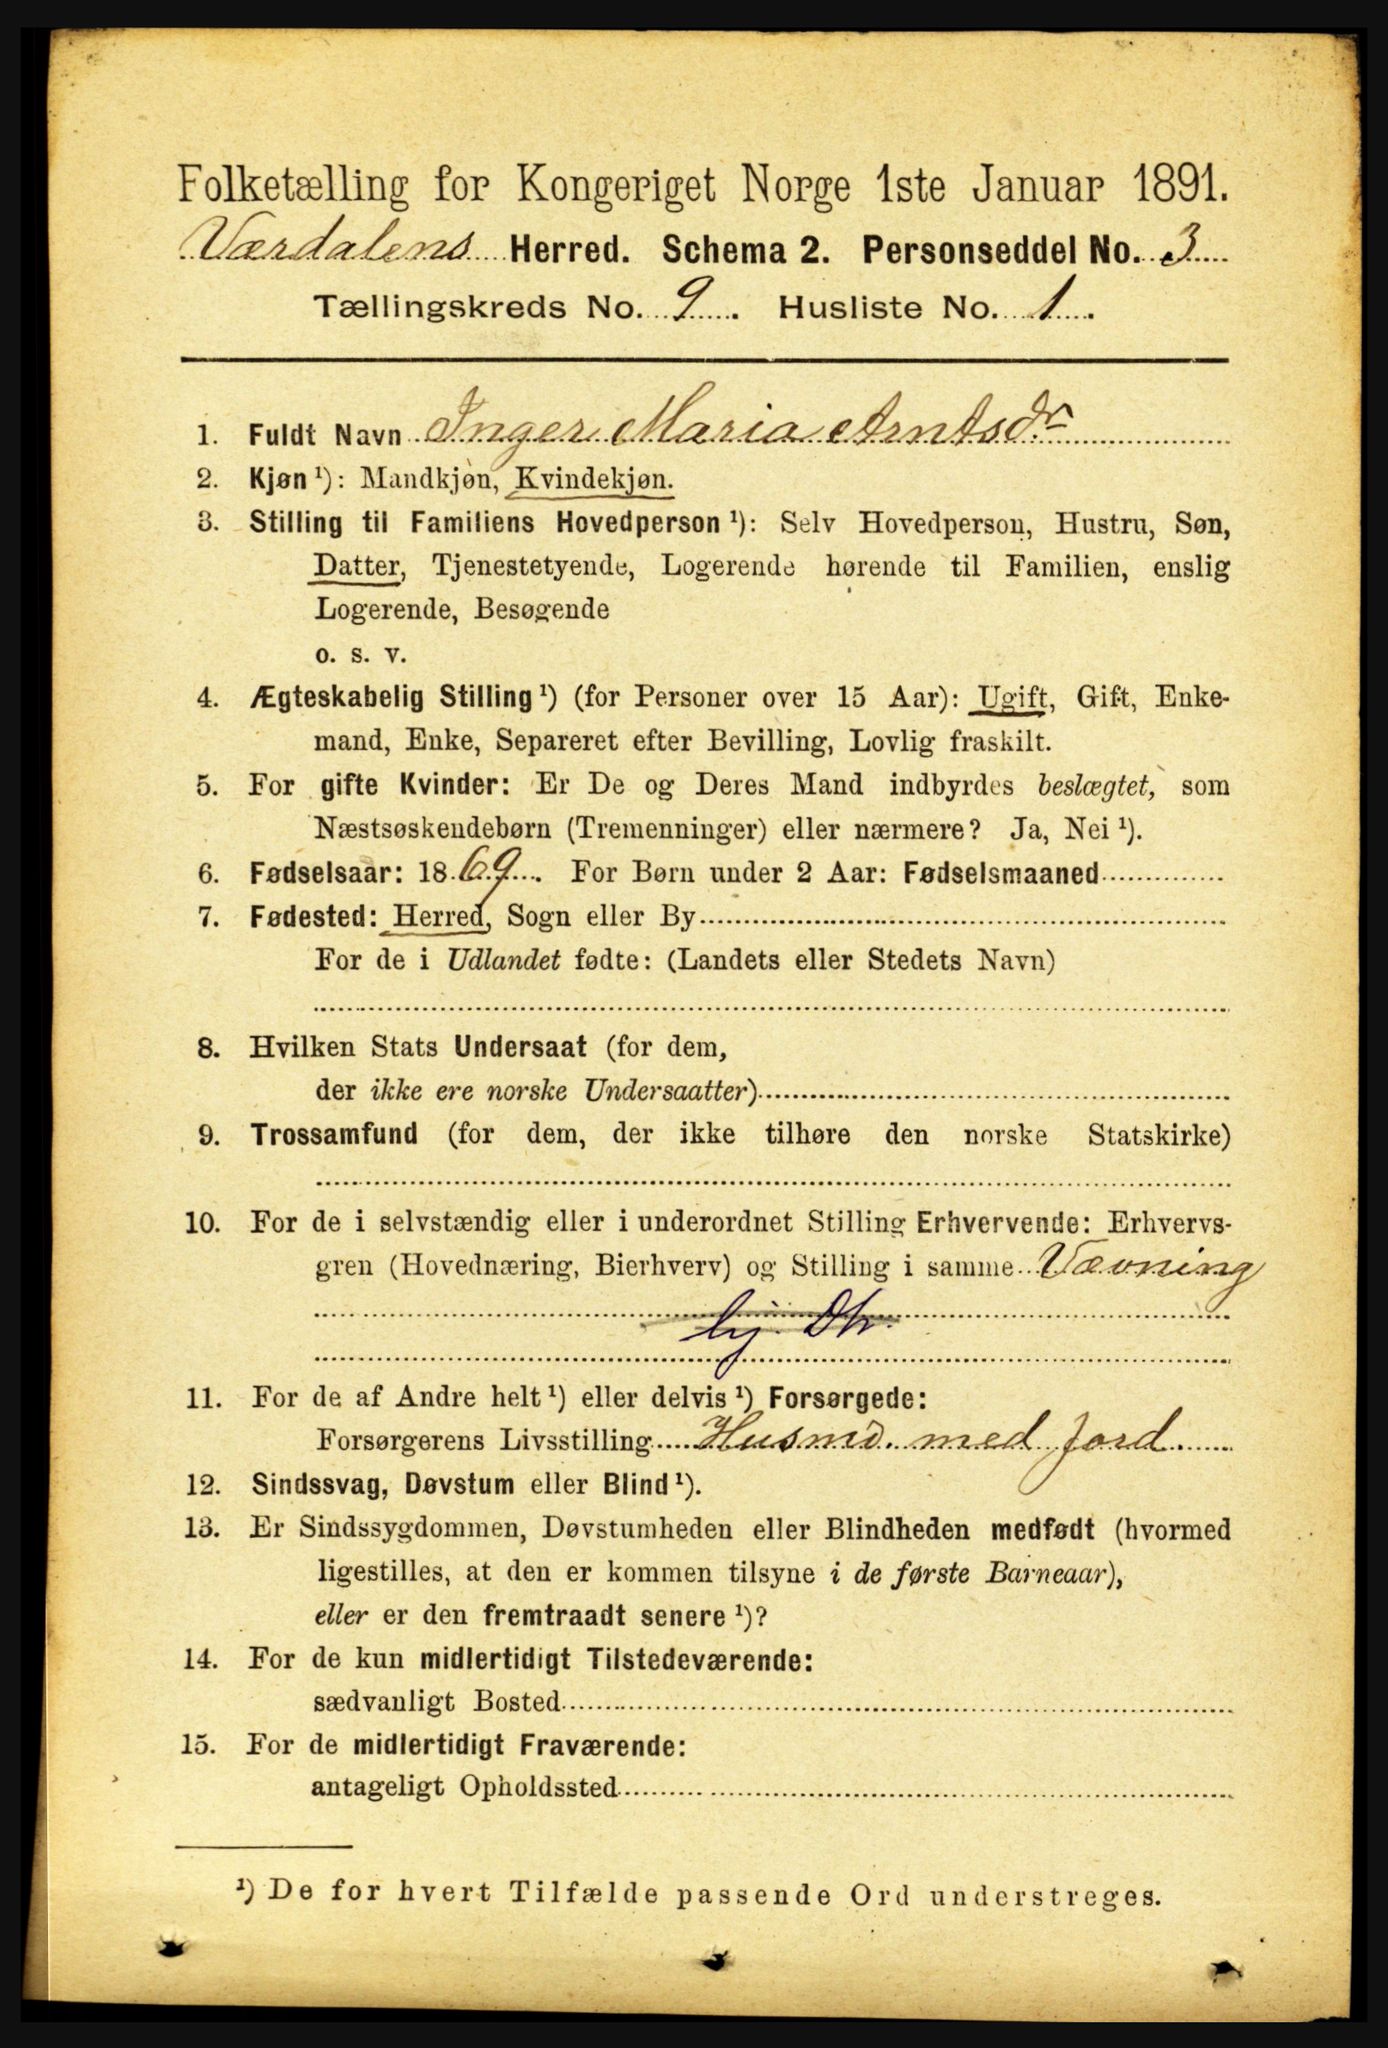 Folketælling for Kongeriget Norge 1ste Januar 1891.
Værdalens Herred. Schema 2. Personseddel No. 3
Tællingskreds No. 9. Husliste No. 1.
1. Fuldt Navn Inger Maria Arntsdr
2. Kjøn ¹): Mandkjøn, Kvindekjøn.
3. Stilling til Familiens Hovedperson ¹): Selv Hovedperson, Hustru, Søn,
Datter, Tjenestetyende, Logerende hørende til Familien, enslig
Logerende, Besøgende
o. s. v.
4. Ægteskabelig Stilling ¹) (for Personer over 15 Aar): Ugift, Gift, Enke-
mand, Enke, Separeret efter Bevilling, Lovlig fraskilt.
5. For gifte Kvinder: Er De og Deres Mand indbyrdes beslægtet, som
Næstsøskendebørn (Tremenninger) eller nærmere? Ja, Nei ¹).
6. Fødselsaar: 1869. For Børn under 2 Aar: Fødselsmaaned
7. Fødested: Herred, Sogn eller By
For de i Udlandet fødte: (Landets eller Stedets Navn)
8. Hvilken Stats Undersaat (for dem,
der ikke ere norske Undersaatter)
9. Trossamfund (for dem, der ikke tilhøre den norske Statskirke)
10. For de i selvstændig eller i underordnet Stilling Erhvervende: Erhvervs-
gren (Hovednæring, Bierhverv) og Stilling i samme Vævning
hj. Dtr.
11. For de af Andre helt ¹) eller delvis ¹) Forsørgede:
Forsørgerens Livsstilling Husmd. med Jord
12. Sindssvag, Døvstum eller Blind ¹).
13. Er Sindssygdommen, Døvstumheden eller Blindheden medfødt (hvormed
ligestilles, at den er kommen tilsyne i de første Barneaar),
eller er den fremtraadt senere ¹)?
14. For de kun midlertidigt Tilstedeværende:
sædvanligt Bosted
15. For de midlertidigt Fraværende:
antageligt Opholdssted
¹) De for hvert Tilfælde passende Ord understreges.